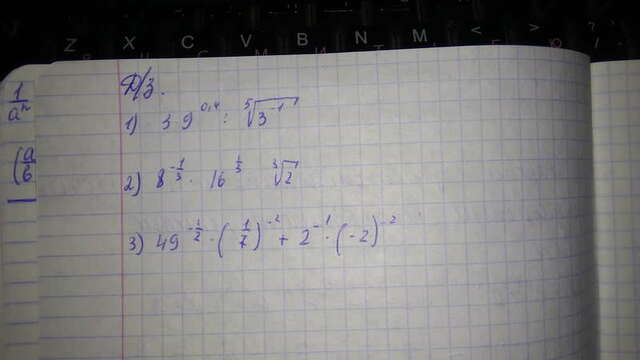 Z X C V B N M < >
1/aⁿ
Д/З.
(a/b
1) 3 9^0,4 : ⁵√3⁻¹
2) 8^(-1/3) · 16^(1/3) ³√2
3) 49^(-1/2) · (1/7)^-2 + 2^-1 · (-2)^-2